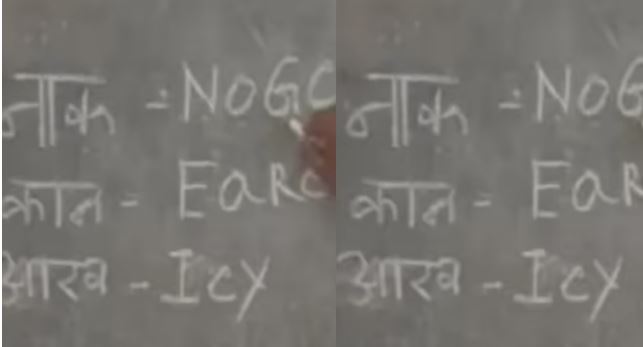 नाक = NOGC नाक = NOG
कान = EaRC कान = EaR
आरव - Icy आरव - Icy